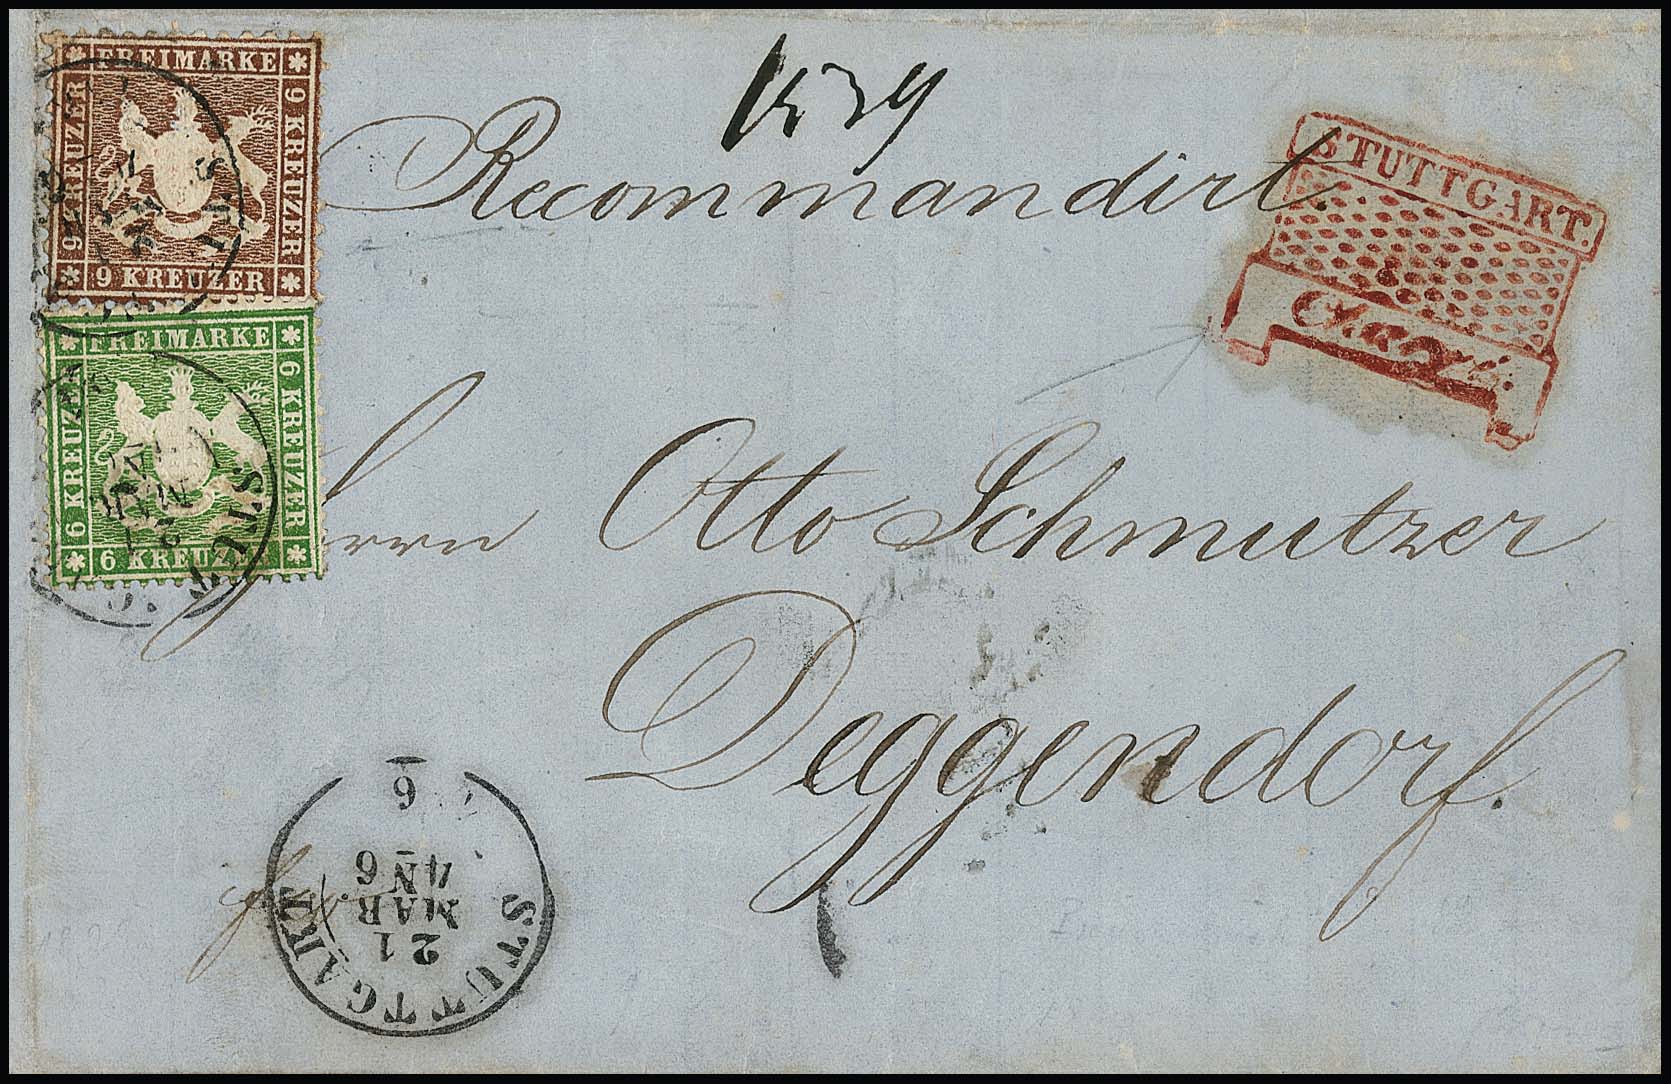 FREIMARKE
9 KREUZER
9 KREUZER
9 KREUZER
FREIMARKE
6 KREUZER
6 KREUZER
6 KREUZER
Recommandirt.
STUTTGART.
Chargé.
Herrn Otto Schmutzer
Deggendorf.
STUTTGART
21
MAR
4 N 6
6